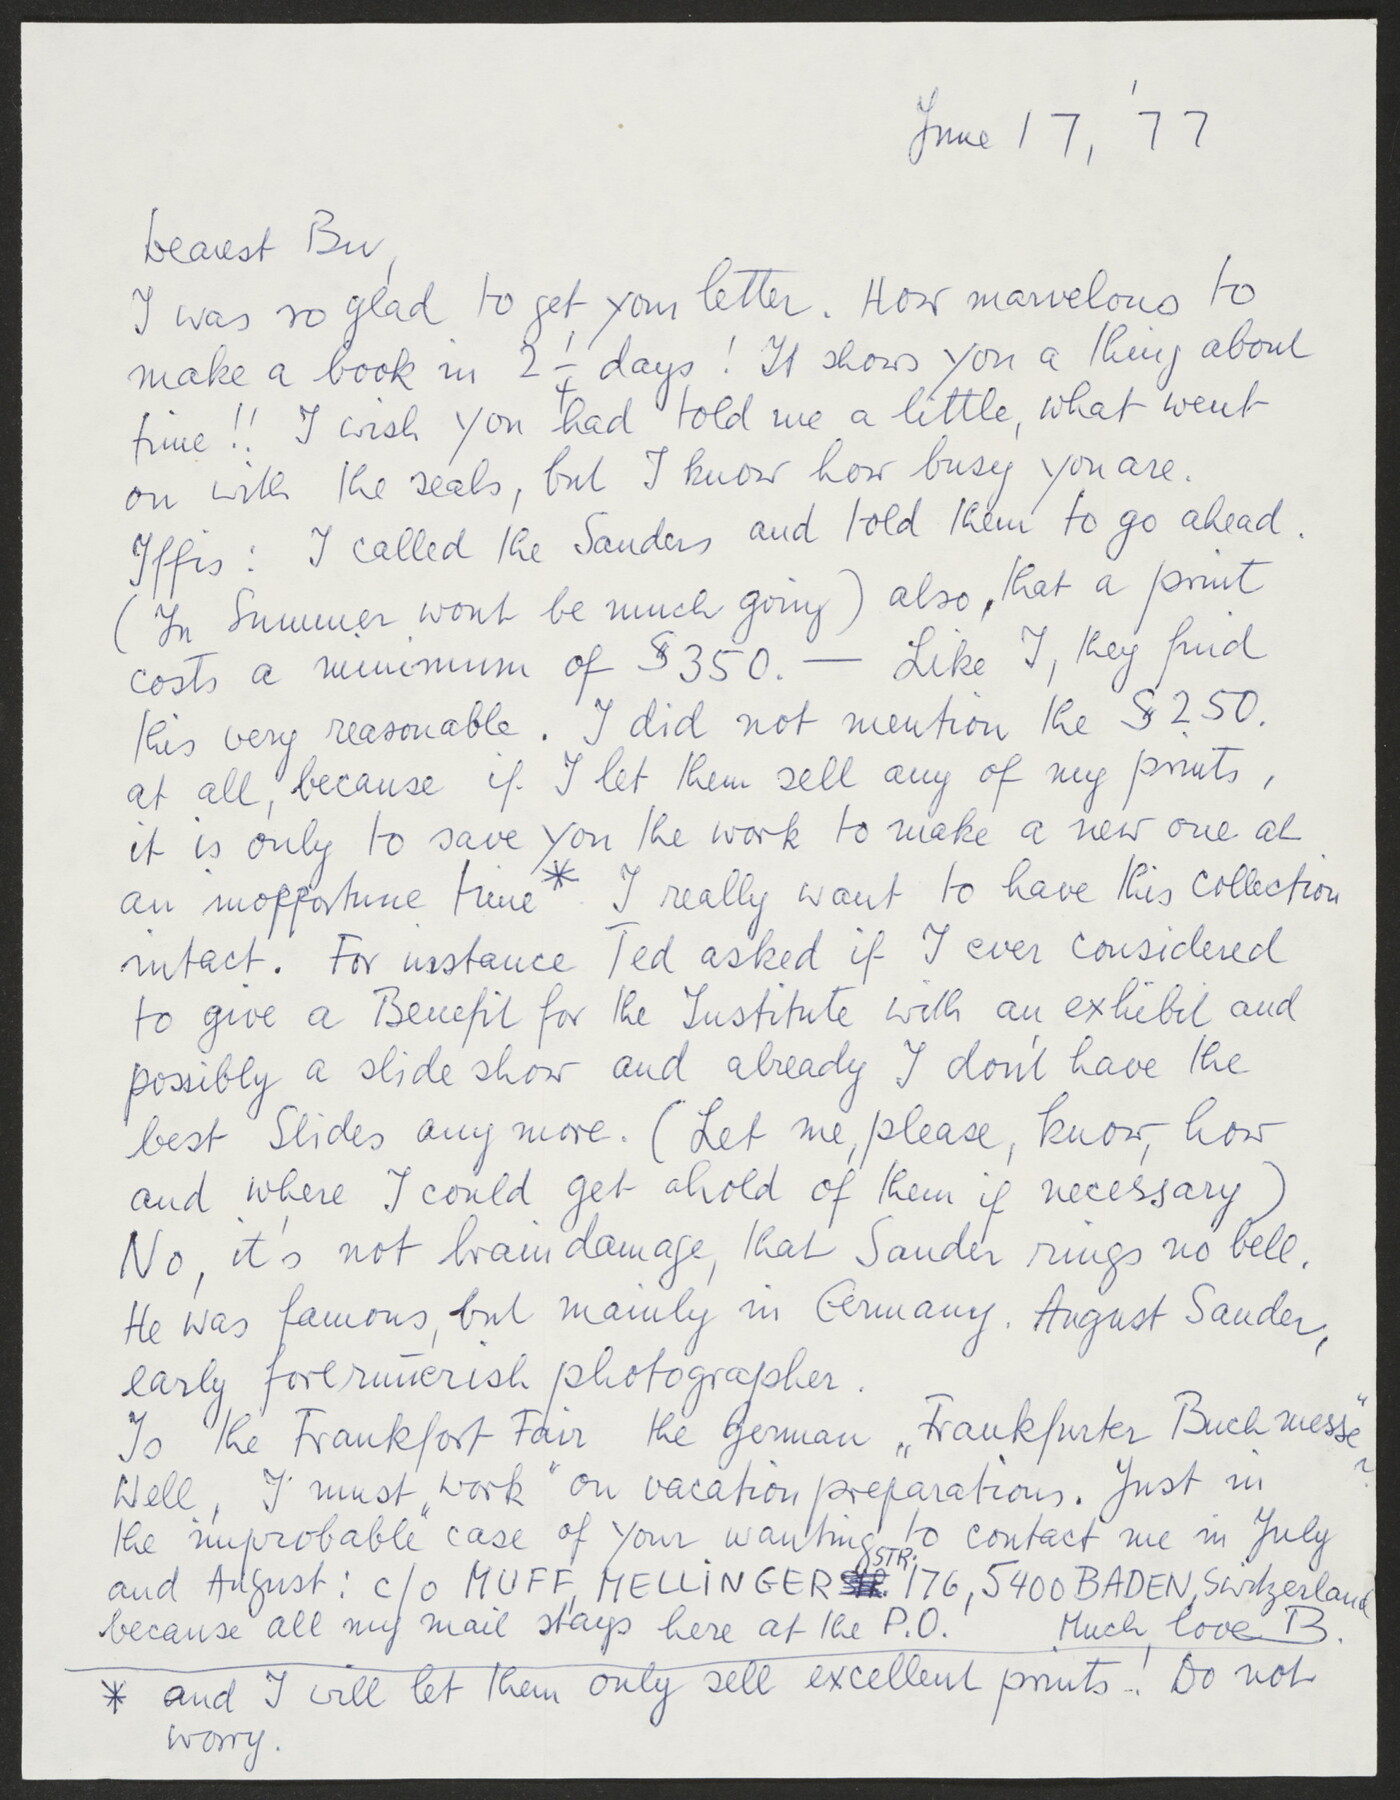 June 17, '77
Dearest Bu,
I was so glad to get your letter. How marvelous to
make a book in 2 1/4 days! It shows you a thing about
time!! I wish you had told me a little, what went
on with the seals, but I know how busy you are.
Iffis: I called the Sanders and told them to go ahead.
(In Summer wont be much going) also, that a print
costs a minimum of $350. — Like I, they find
this very reasonable. I did not mention the $250.
at all, because if I let them sell any of my prints,
it is only to save you the work to make a new one at
an inopportune time*. I really want to have this collection
intact. For instance Ted asked if I ever considered
to give a Benefit for the Institute with an exhibit and
possibly a slide show and already I don't have the
best Slides any more. (Let me, please, know, how
and where I could get ahold of them if necessary)
No, it's not braindamage, that Sander rings no bell.
He was famous, but mainly in Germany. August Sander,
early forerun̄erish photographer.
Is the Frankfort Fair the german „Frankfurter Buchmesse"?
Well, I must „work" on vacation preparations. Just in
the "improbable" case of your wanting to contact me in July
and August: c/o MUFF, MELLINGERSTR. 176, 5400 BADEN, Switzerland
because all my mail stays here at the P.O. Much love B.
* and I will let them only sell excellent prints! Do not
worry.